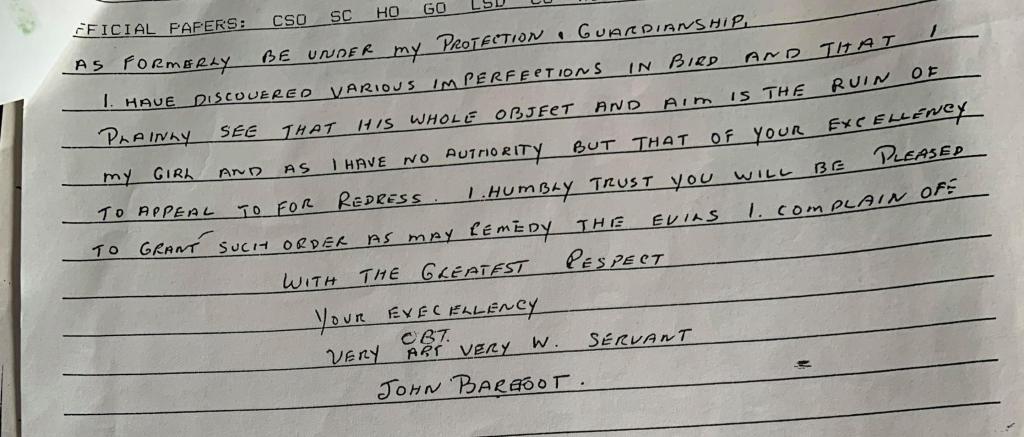 FFICIAL PAPERS: CSO SC HO GO LSD
AS FORMERLY BE UNDER MY PROTECTION & GUARDIANSHIP,
I. HAVE DISCOVERED VARIOUS IMPERFECTIONS IN BIRD AND THAT I
PLAINLY SEE THAT HIS WHOLE OBJECT AND AIM IS THE RUIN OF
MY GIRL AND AS I HAVE NO AUTHORITY BUT THAT OF YOUR EXCELLENCY
TO APPEAL TO FOR REDRESS. I. HUMBLY TRUST YOU WILL BE PLEASED
TO GRANT SUCH ORDER AS MAY REMEDY THE EVILS I. COMPLAIN OFF
WITH THE GREATEST RESPECT
YOUR EXECELLENCY
OBT.
VERY ART VERY W. SERVANT
JOHN BAREFOOT.